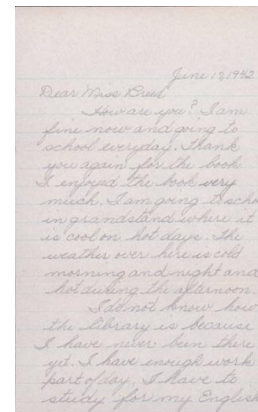 June 17, 1942
Dear Miss Breed
How are you? I am
fine now and going to
school everyday. Thank
you again for the book
I enjoyed the book very
much. I am going to scho
in grandstand where it
is cool on hot days. The
weather over here is cold
morning and night and
hot during the afternoon.
I do not know how
the library is because
I have never been there
yet. I have enough work
part of day. I have to
study for my English